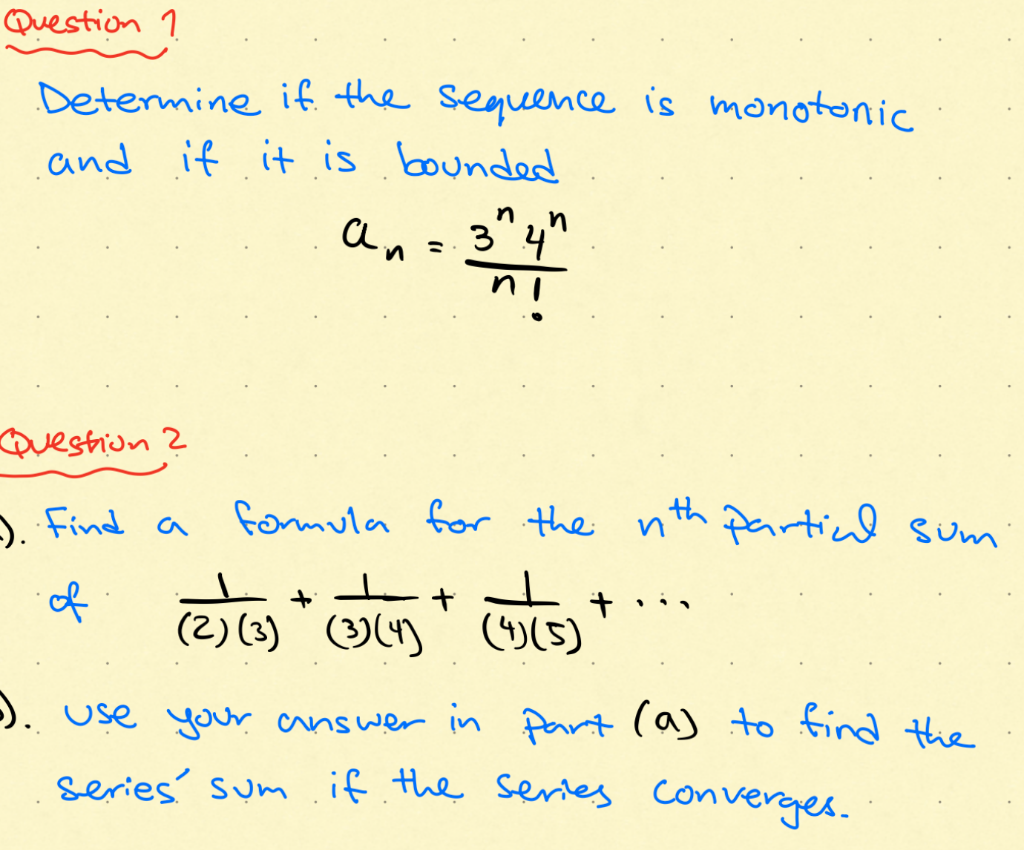 Question 1
Determine if the sequence is monotonic
and if it is bounded
aₙ = 3ⁿ 4ⁿ / n!
Question 2
). Find a formula for the nᵗʰ partial sum
of 1/(2)(3) + 1/(3)(4) + 1/(4)(5) + ...
). Use your answer in part (a) to find the
series' sum if the series converges.